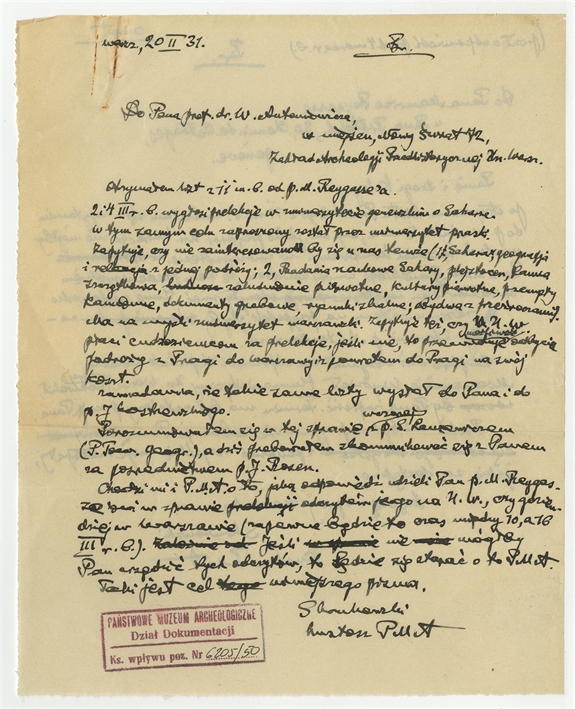 warsz, 20 II 31.
Br.
Do Pana prof. dr. W. Antoniewicza,
w miejscu, Nowy Świat 72,
Zakład Archeologji Przedhistorycznej Un. Warsz.
Otrzymałem list z 11 m. b. od p. M. Reygasse'a.
2 i 4 III r. b. wygłosi prelekcje w uniwersytecie genewskim o Saharze.
W tym samym celu zaproszony został przez uniwersytet praski.
Zapytuje, czy nie zainteresowano by się u nas temże (1, Sahara, geografja
i relacja z jednej podróży; 2, Badania naukowe Sahary, plejstocen, fauna
kultury pierwotne, przemysły
kamienne, dokumenty grobowe, rysunki skalne; obydwa z przezroczami
na uniwersytet warszawski. Zapytuje też, czy U. W.
płaci cudzoziemcom za prelekcje, jeśli nie, to odbycia
podróży z Pragi do Warszawy i z powrotem do Pragi na swój
koszt.
nadmienia, że takie same listy wysłał do Pana i do
p. J. Kostrzewskiego.
wczoraj
Porozumiewałem się w tej sprawie z p. S.
(P. Tow. Geogr.), a dziś próbowałem skomunikować się z Panem
za pośrednictwem p. J. Rosen.
Chodzi mi i P.M.A. o to, jaką odpowiedź udzieli Pan p. M. Reygas-
se'owi w sprawie prelekcji odczytów jego na U. W., czy gdzein-
dziej w Warszawie (zapewne będzie to czas między 10, a 16
III r. b.). Jeśli nie mógłby
Pan urządzić tych odczytów, to będzie się starać o to P.M.A.
Taki jest cel tego niniejszego pisma.
kustosz P.M.A
PAŃSTWOWE MUZEUM ARCHEOLOGICZNE
Dział Dokumentacji
Ks. wpływu poz. Nr 6205/50